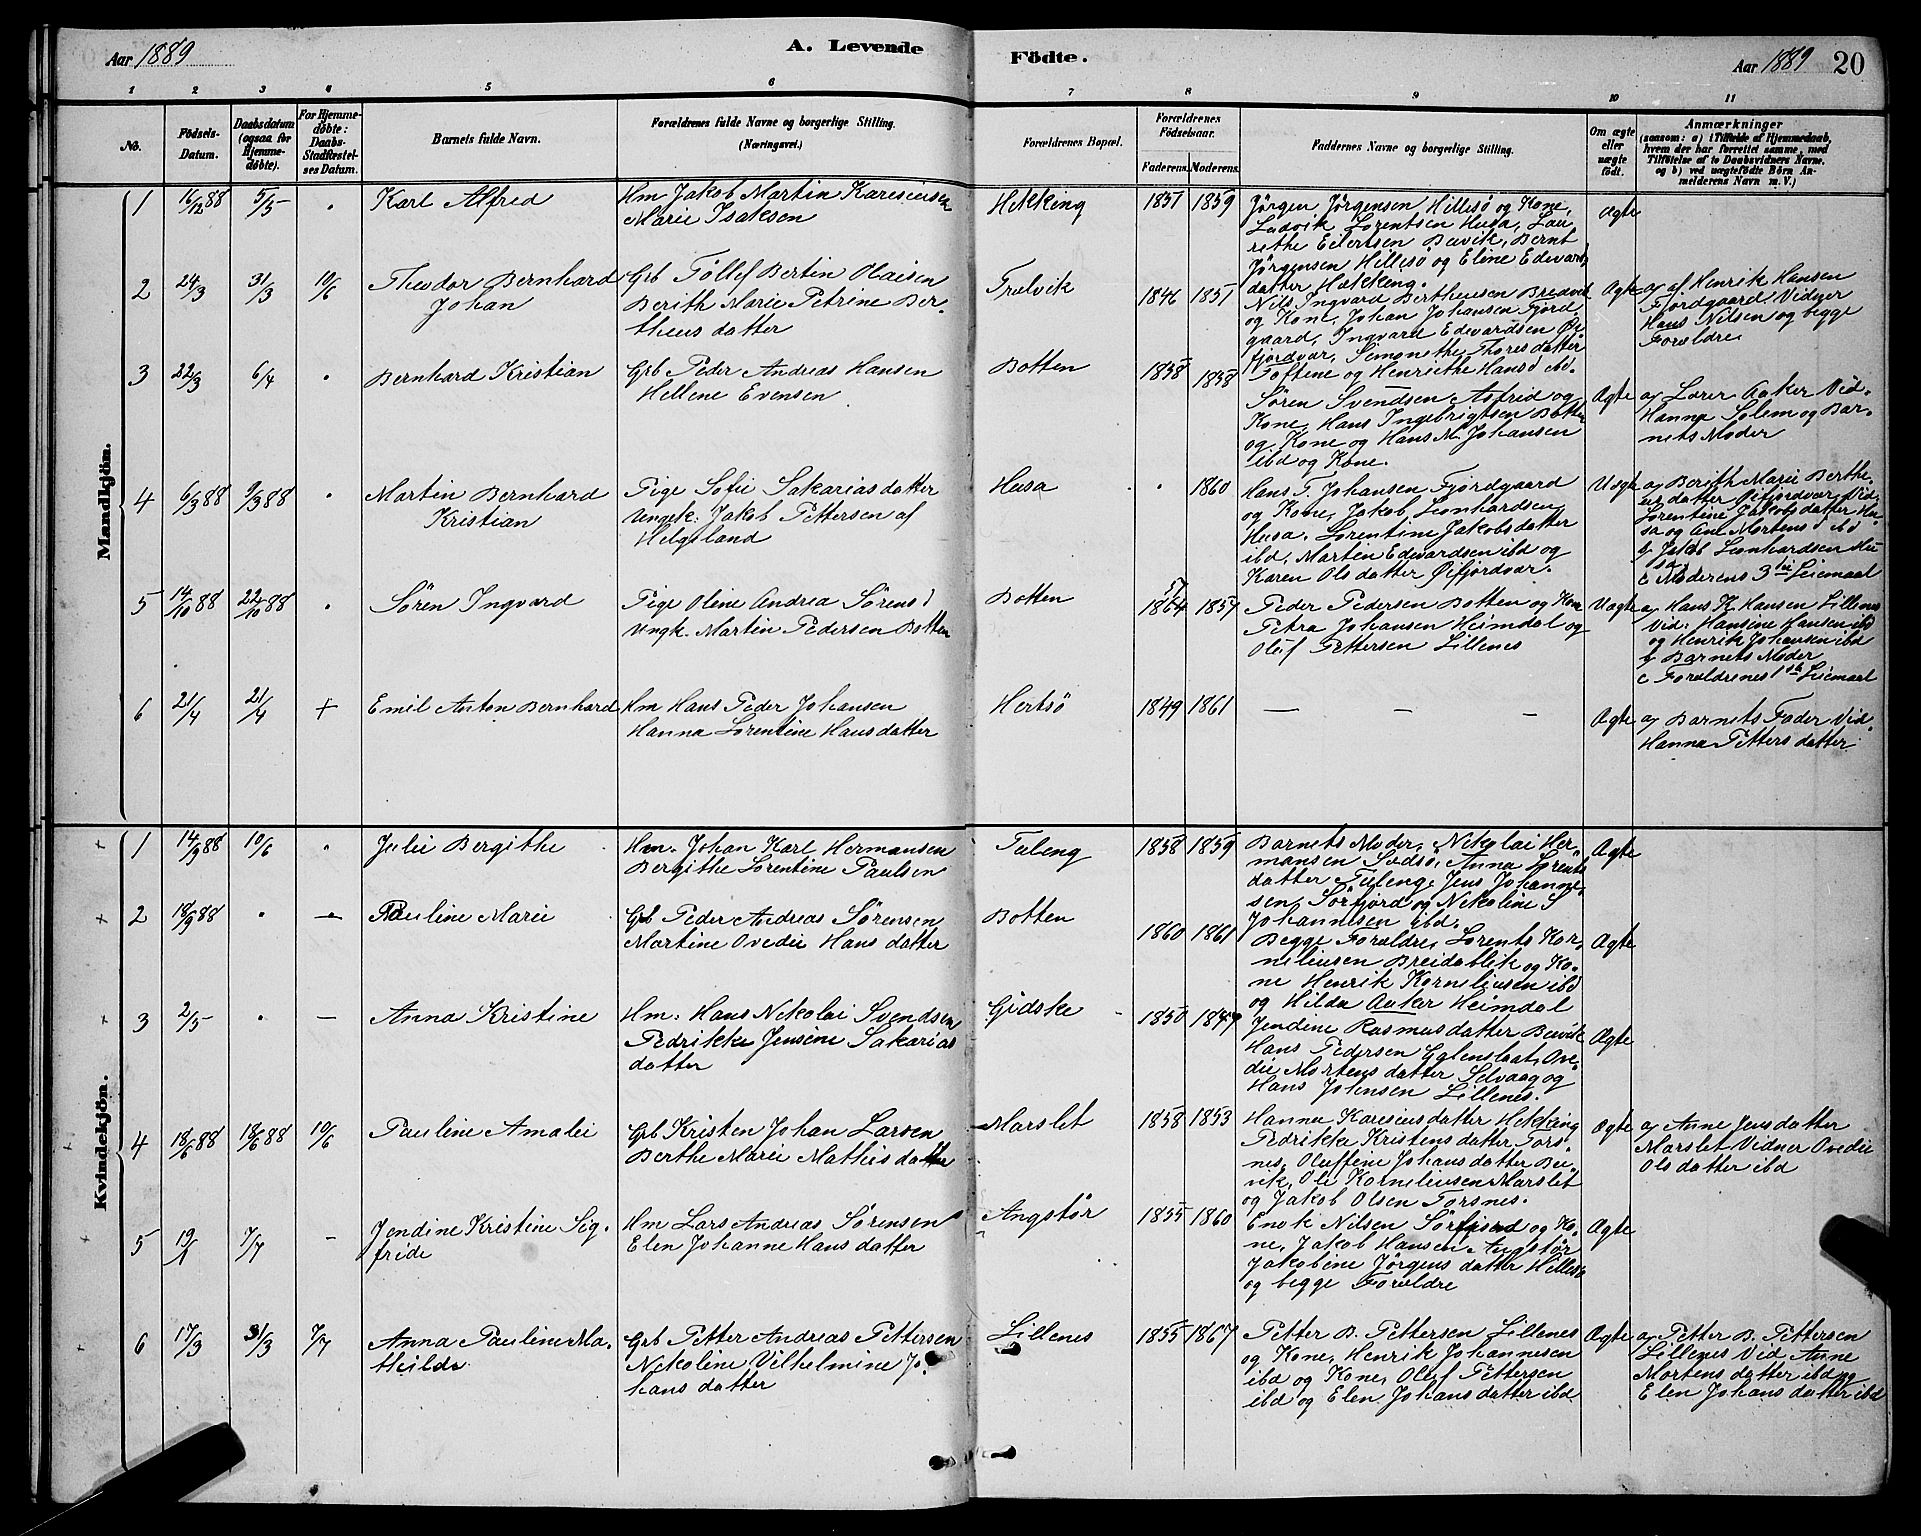 Aar 1889
A. Levende
Födte.
Aar 1889 20
1 2 3 4 5 6 7 8 9 10 11
No.
Födsels-
Datum.
Daabsdatum
(ogsaa for
Hjemme-
döbte).
For Hjemme-
döbte:
Daabs-
Stadfæstel-
ses Datum.
Barnets fulde Navn.
Forældrenes fulde Navne og borgerlige Stilling.
(Næringsvei.)
Forældrenes Bopæl.
Forældrenes
Födselsaar.
Faderens. Moderens.
Faddernes Navne og borgerlige Stilling.
Om ægte
eller
uægte
født.
Anmærkninger
(saasom: a) i Tilfælde af Hjemmedaab,
hvem der har forrettet samme, med
Tilföielse af to Daabsvidners Navne,
og b) ved uægtefödte Börn An-
melderens Navn m. V.)
Mandkjön.
1 16/12 88 5/5 "
Karl Alfred
Hm Jakob Martin Karesiusen
Marie Isaksen
Hekking
1857 1859
Jörgen Jörgensen Hillesö og Kone,
Ludvik Lorentsen Husa, Lau-
rithe Eilertsen Buvik, Bernt
Jörgensen Hillesö og Eline Edvards
datter Hekking.
Ægte
2 24/3 31/3 10/6
Theodor Bernhard
Johan
Grb Töllef Bertin Olaisen
Berith Marie Petrine Ber-
theus datter
Trælvik
1846 1851
Nils Ingvard Bertheusen Bredvik
og Kone, Johan Johansen Fjord-
gaard, Ingvard Edvardsen Øi-
fjordvær, Simonethe Thoresdatter
Toftene og Henriethe Hansd ibd.
Ægte
a) af Henrik Hansen
Fjordgaard Vidner
Hans Nilsen og begge
Forældre
3 22/3 6/4 "
Bernhard Kristian
Grb Peder Andreas Hansen
Hellene Evensen
Botten
1858 1858
Sören Svendsen Astrid og
Kone, Hans Ingebrigtsen Botten
og Kone og Hans M. Johansen
ibd og Kone.
Ægte
a) Lærer Aaker Vid-
Hanna Solem og Bar-
nets Moder
4 6/3 88 9/3 88 "
Martin Bernhard
Kristian
Pige Sofie Sakariasdatter
Ungk. Jakob Pettersen af
Helgeland
Husa
" 1860
Hans P. Johansen Fjordgaard
og Kone, Jakob Leonhardsen
Husa. Lorentine Jakobsdatter
ibd, Martin Edvardsen ibd og
Karen Olsdatter Øifjordvær.
Uægte
a) Berith Marie Berthe-
us datter Øifjordvær Vid.
Lorentine Jakobsdatter Hu-
sa og Ane Mortensd ibd
b) Jakob Leonhardsen Hu-
sa
c Moderens 3die Leiemaal
5 14/10 88 22/10 88 "
Sören Ingvard
Pige Oline Andrea Sörensd
Ungk. Martin Pedersen Botten
Botten
57
1864 1857
Peder Pedersen Botten og Kone
Petra Johansen Heimdal og
Oluf Pettersen Lillenes
Uægte
a) Hans K Hansen Lillenes
Vid. Hansine Hansen ibd
og Henrik Johansen ibd
b) Barnets Moder
c Forældrenes 1ste Leiemaal
6 21/4 21/4 +
Emil Anton Bernhard
Hm Hans Peder Johansen
Hanna Lorentine Hansdatter
Hertsö
1849 1861
— — —
Ægte
a) Barnets Fader Vid.
Hanna Petters datter
Kvindekjön.
1 14/9 88 10/6 "
Julie Bergithe
Hm. Johan Karl Hermansen
Bergithe Lorentine Paulsen
Tuleng
1858 1859
Barnets Moder, Nikolai Her-
mansen Sedsö, Anna Lorents
datter Tuleng, Jens Johanne-
sen Sörfjord og Nikoline S
Johannesen ibd.
Ægte
2 18/9 88 " —
Pauline Marie
Grb Peder Andreas Sörensen
Martine Ovedie Hans datter
Botten
1860 1861
Begge Forældre, Lorents Kor-
neliusen Breidablik og Ko-
ne Henrik Korneliusen ibd
og Hilda Aaker Heimdal
Ægte
3 2/5 " —
Anna Kristine
Hm. Hans Nikolai Svendsen
Pedrikke Jensine Sakarias
datter
Gidske
1850 1847
Jendine Rasmusdatter Buvik
Hans Pedersen Galenslaat, Ove-
die Mortens datter Selvaag og
Hans Johnsen Lillenes.
Ægte
4 18/6 88 18/6 88 10/6
Pauline Amalie
Grb Kristen Johan Larsen
Berthe Marie Mathisdatter
Marslet
1858 1853
Hanna Karesiusdatter Hekking
Pedrikke Kristens datter Tors-
nes, Oluffine Johansdatter Bu-
vik, Ole Korneliusen Marslet
og Jakob Olsen Torsnes.
Ægte
a) Anne Jensdatter
Marslet Vidner Ovedie
Olsdatter ibd
5 19/1 7/7 —
Jendine Kristine Sig-
fride
Hm Lars Andreas Sörensen
Elen Johanne Hansdatter
Angstör
1855 1860
Enok Nilsen Sörfjord og Ko-
ne, Jakob Hansen Angstör
Jakobine Jörgens datter Hillesö
og begge Forældre
Ægte
6 17/3 31/3 7/7
Anna Pauline Ma-
thilde
Grb Petter Andreas Pettersen
Nikoline Vilhelmine Jo-
hans datter
Lillenes
1855 1867
Petter B. Pettersen Lillenes
og Kone, Henrik Johannesen
ibd og Kone, Oluf Pettersen
ibd og Elen Johansdatter ibd
Ægte
a) Petter B. Pettersen
Lillenes Vid Anne
Mortens datter ibd og
Elen Johans datter ibd